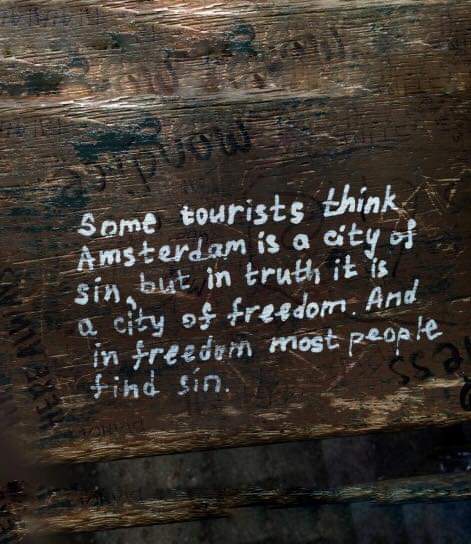 Some tourists think
Amsterdam is a city of
sin, but in truth it is
a city of freedom. And
in freedom most people
find sin.